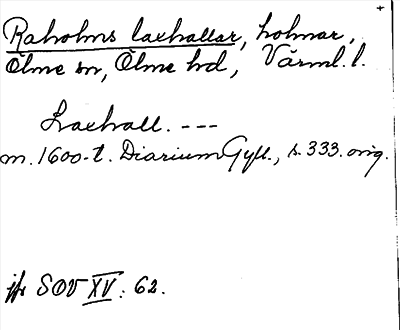 +
Raholms laxhallar, holmar,
Ölme sn, Ölme hd, Värml. l.
Laxhall. ---
m. 1600-t. Diarium Gyll., s. 333. orig.
jfr SOV XV: 62.